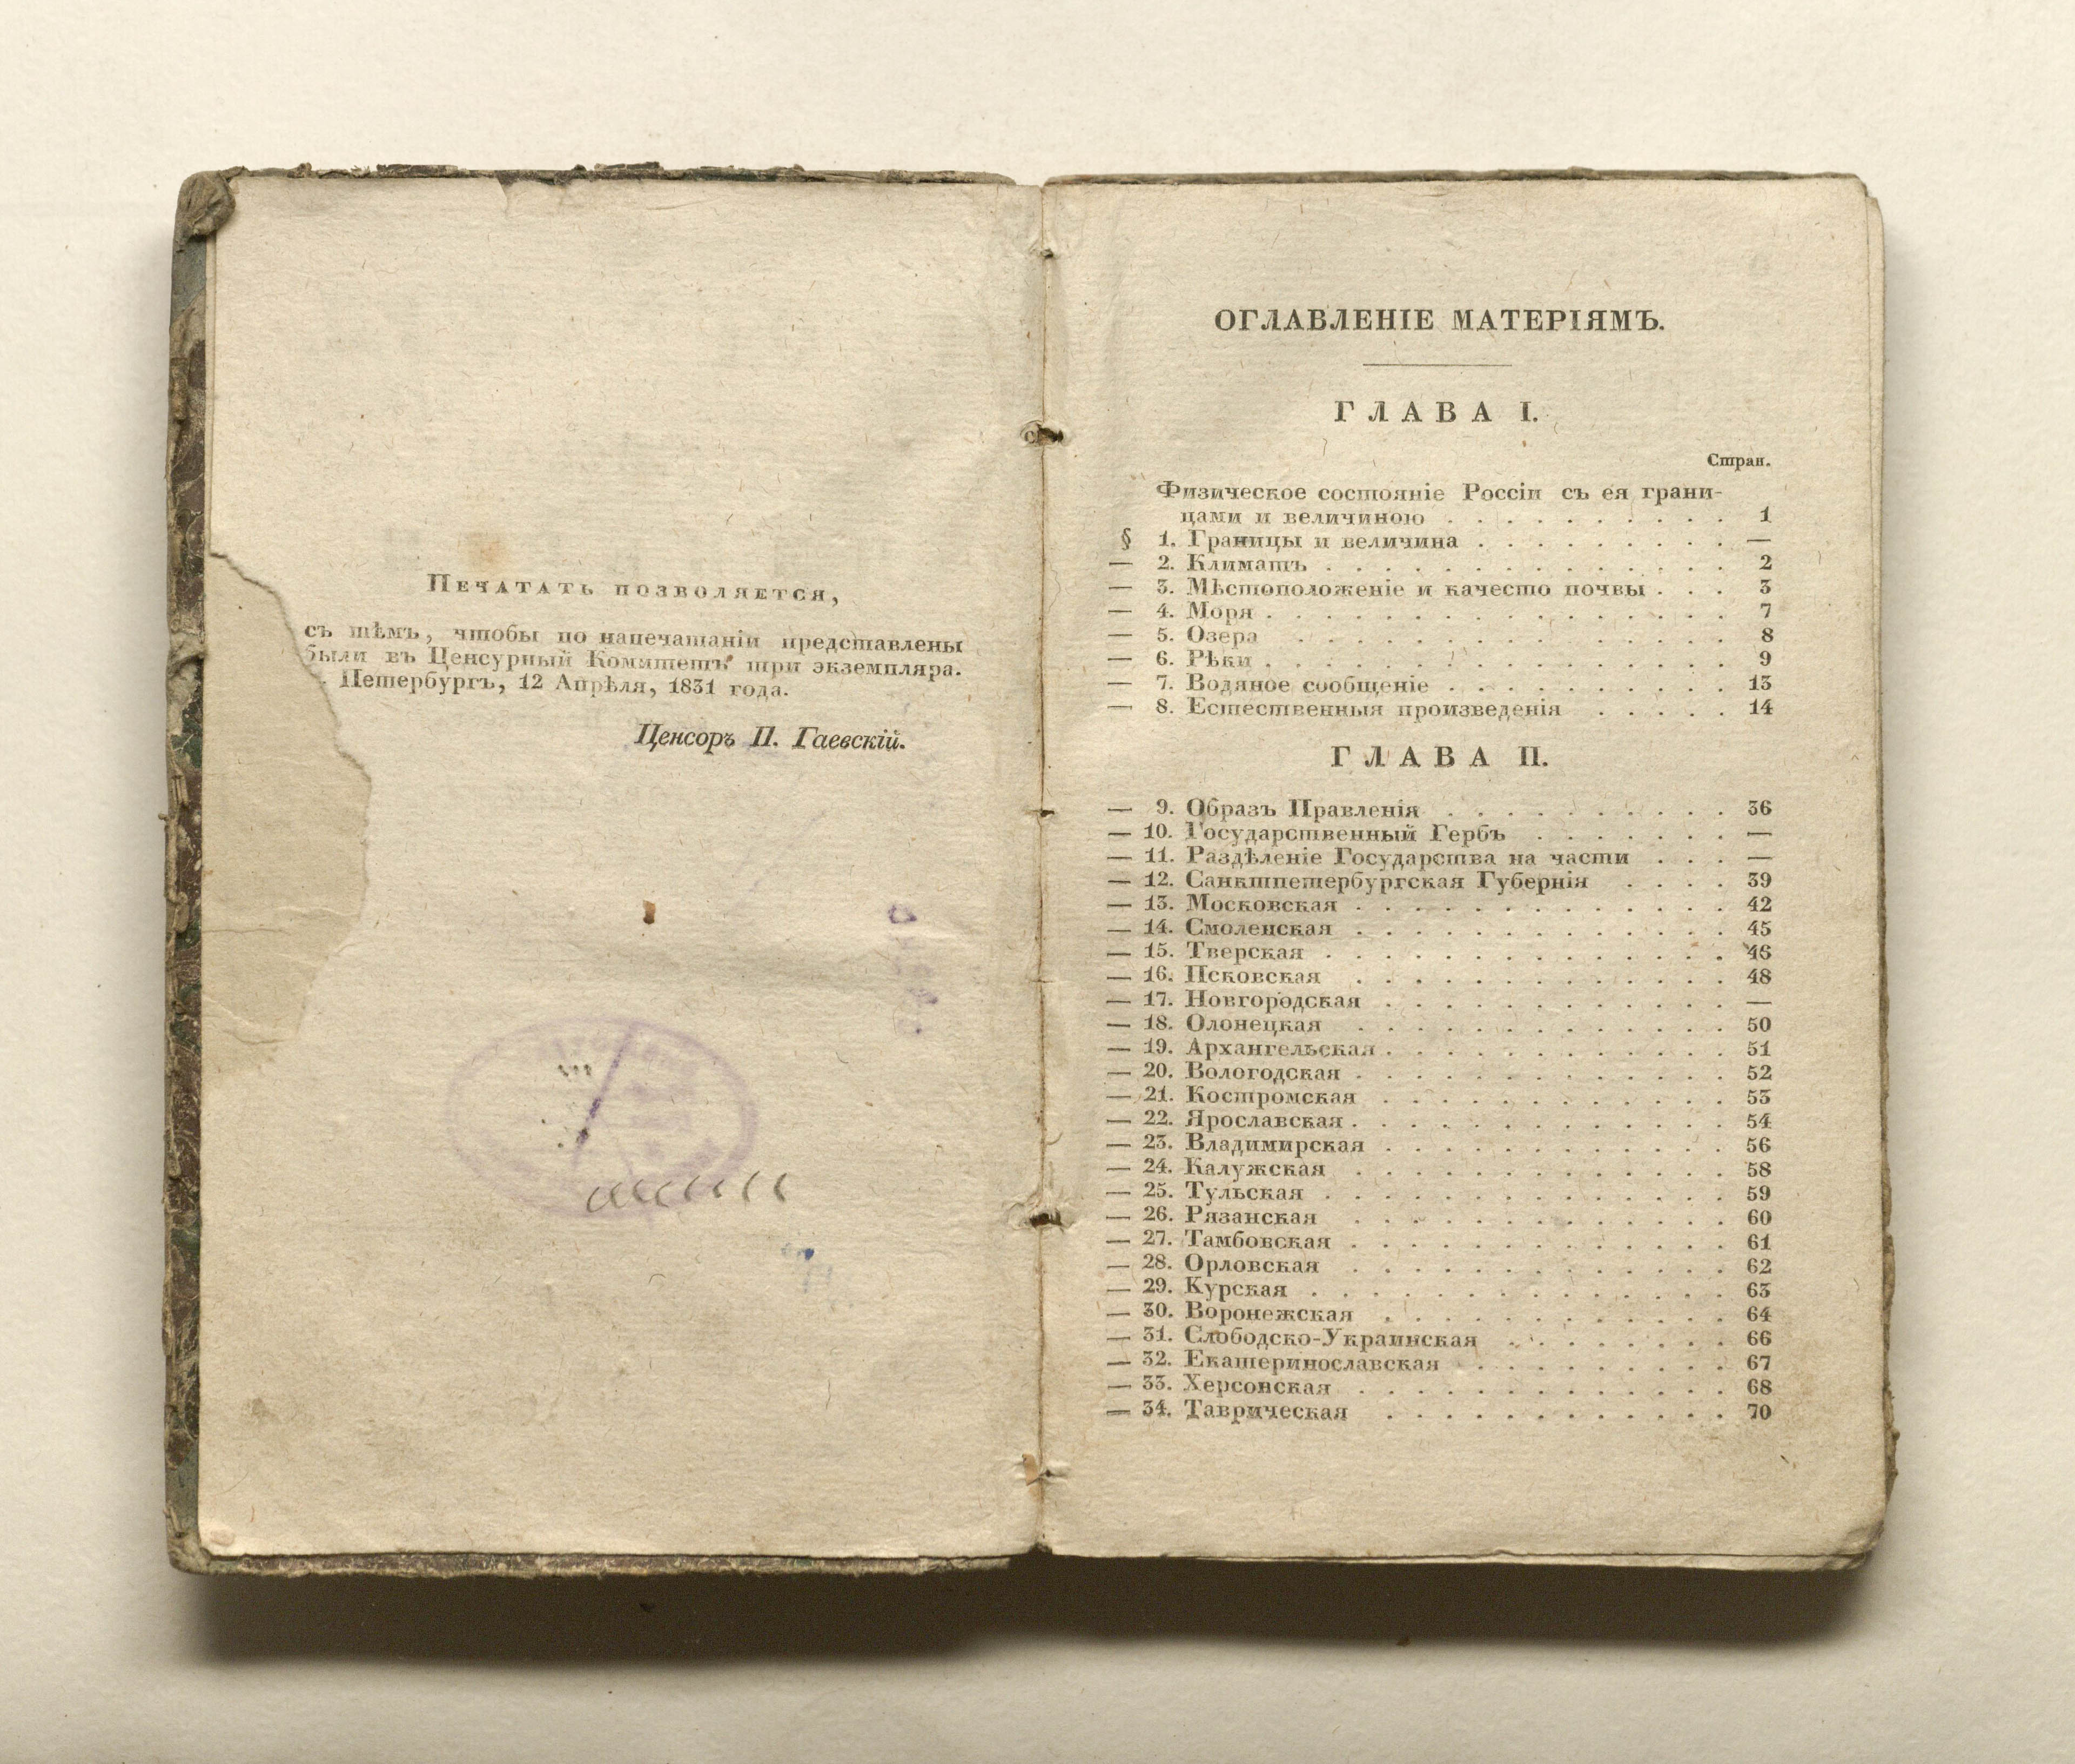 Печатать позволяется,
съ тѣмъ, чтобы по напечатаніи представлены
были въ Ценсурный Комитетъ три экземпляра.
Петербургъ, 12 Апрѣля, 1831 года.
Ценсоръ П. Гаевскій.
ОГЛАВЛЕНІЕ МАТЕРІЯМЪ.
ГЛАВА I.
Стран.
Физическое состояніе Россіи съ ея грани-
цами и величиною . . . . . . . . . . 1
§ 1. Границы и величина . . . . . . . . . —
— 2. Климатъ . . . . . . . . . . . . . . 2
— 3. Мѣстоположеніе и качесто почвы . . . 3
— 4. Моря . . . . . . . . . . . . . . . . 7
— 5. Озера . . . . . . . . . . . . . . . 8
— 6. Рѣки . . . . . . . . . . . . . . . . 9
— 7. Водяное сообщеніе . . . . . . . . . . 13
— 8. Естественныя произведенія . . . . . 14
ГЛАВА II.
— 9. Образъ Правленія . . . . . . . . . . 36
— 10. Государственный Гербъ . . . . . . . —
— 11. Раздѣленіе Государства на части . . . —
— 12. Санктпетербургская Губернія . . . . 39
— 13. Московская . . . . . . . . . . . . . 42
— 14. Смоленская . . . . . . . . . . . . . 45
— 15. Тверская . . . . . . . . . . . . . . 46
— 16. Псковская . . . . . . . . . . . . . 48
— 17. Новгородская . . . . . . . . . . . . —
— 18. Олонецкая . . . . . . . . . . . . . 50
— 19. Архангельская . . . . . . . . . . . . 51
— 20. Вологодская . . . . . . . . . . . . . 52
— 21. Костромская . . . . . . . . . . . . 53
— 22. Ярославская . . . . . . . . . . . . . 54
— 23. Владимирская . . . . . . . . . . . . 56
— 24. Калужская . . . . . . . . . . . . . 58
— 25. Тульская . . . . . . . . . . . . . . 59
— 26. Рязанская . . . . . . . . . . . . . 60
— 27. Тамбовская . . . . . . . . . . . . . 61
— 28. Орловская . . . . . . . . . . . . . 62
— 29. Курская . . . . . . . . . . . . . . . 63
— 30. Воронежская . . . . . . . . . . . . 64
— 31. Слободско-Украинская . . . . . . . . 66
— 32. Екатеринославская . . . . . . . . . 67
— 33. Херсонская . . . . . . . . . . . . . 68
— 34. Таврическая . . . . . . . . . . . . 70